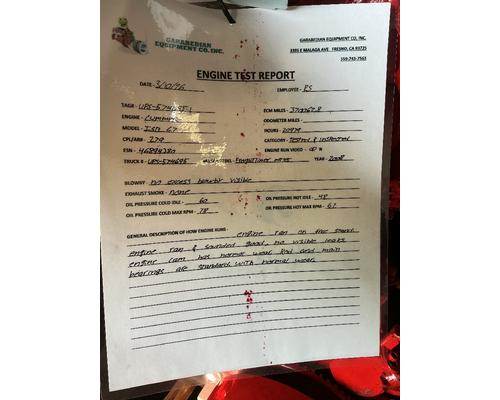 GARABEDIAN
EQUIPMENT CO. INC.
GARABEDIAN EQUIPMENT CO, INC.
3395 E MALAGA AVE FRESNO, CA 93725
559-743-7563
ENGINE TEST REPORT
DATE - EMPLOYEE - RS
TAG# - UPS-574695-1 ECM MILES -
ENGINE - CUMMINS ODOMETER MILES -
MODEL - ISB 6.7 HOURS -
CPL/AR# - 279 CATEGORY - Tested & Inspected
ESN - ENGINE RUN VIDEO -
TRUCK # - UPS-574695 YEAR - 2008
BLOWBY - no excess blowby visible
EXHAUST SMOKE - none
OIL PRESSURE COLD IDLE - 60 OIL PRESSURE HOT IDLE - 48
OIL PRESSURE COLD MAX RPM - 78 OIL PRESSURE HOT MAX RPM - 62
GENERAL DESCRIPTION OF HOW ENGINE RUNS - engine ran on test stand.
engine ran & sounded good, no visible leaks.
engine cam has normal wear. Rod and main
bearings are standard with normal wear.